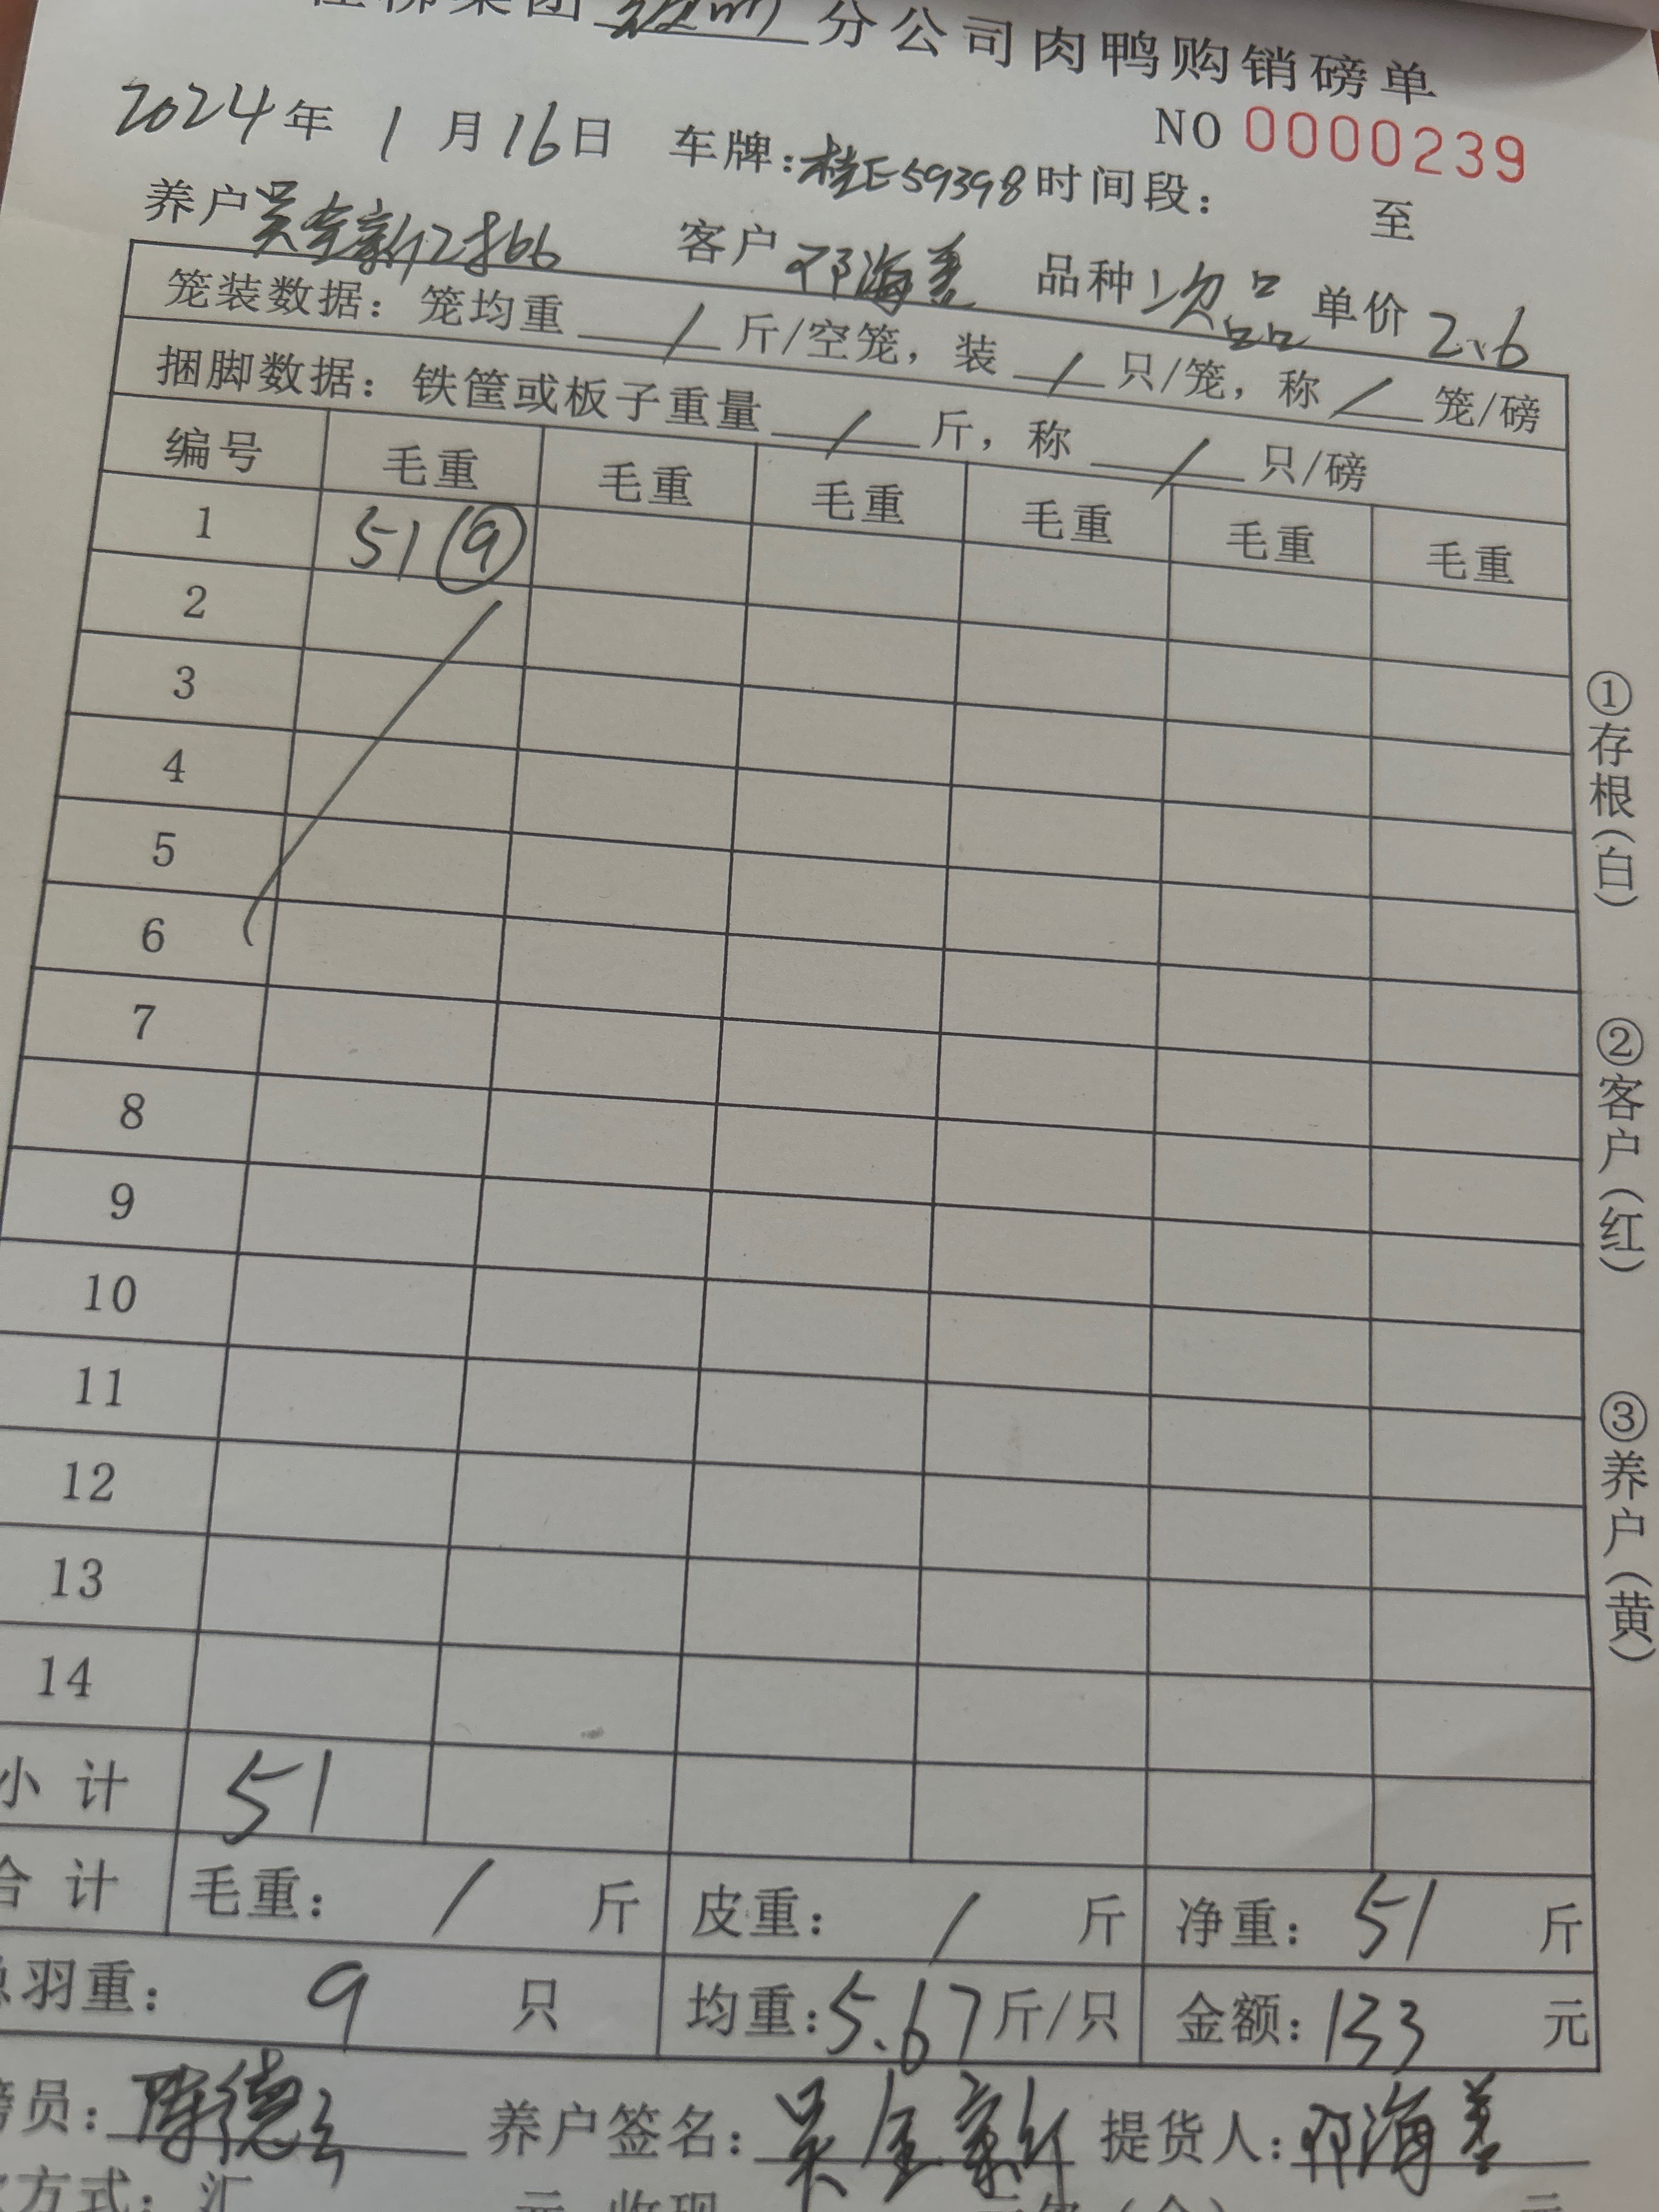 集团 分公司肉鸭购销磅单
NO 0000239
2024年 1月16日 车牌:桂E59398 时间段: 至
养户 吴全新2批66 客户 邓海善 品种 次品 单价 2.6
笼装数据: 笼均重 / 斤/空笼, 装 / 只/笼, 称 / 笼/磅
捆脚数据: 铁筐或板子重量 / 斤, 称 / 只/磅
编号 毛重 毛重 毛重 毛重 毛重 毛重
1 51 ⑨
2
3
4
5
6
7
8
9
10
11
12
13
14
小计 51
合计 毛重: / 斤 皮重: / 斤 净重: 51 斤
总羽重: 9 只 均重: 5.67 斤/只 金额: 133 元
磅员: 陈德 养户签名: 吴全新 提货人: 邓海善
方式: 汇 元 收现
①存根(白) ②客户(红) ③养户(黄)